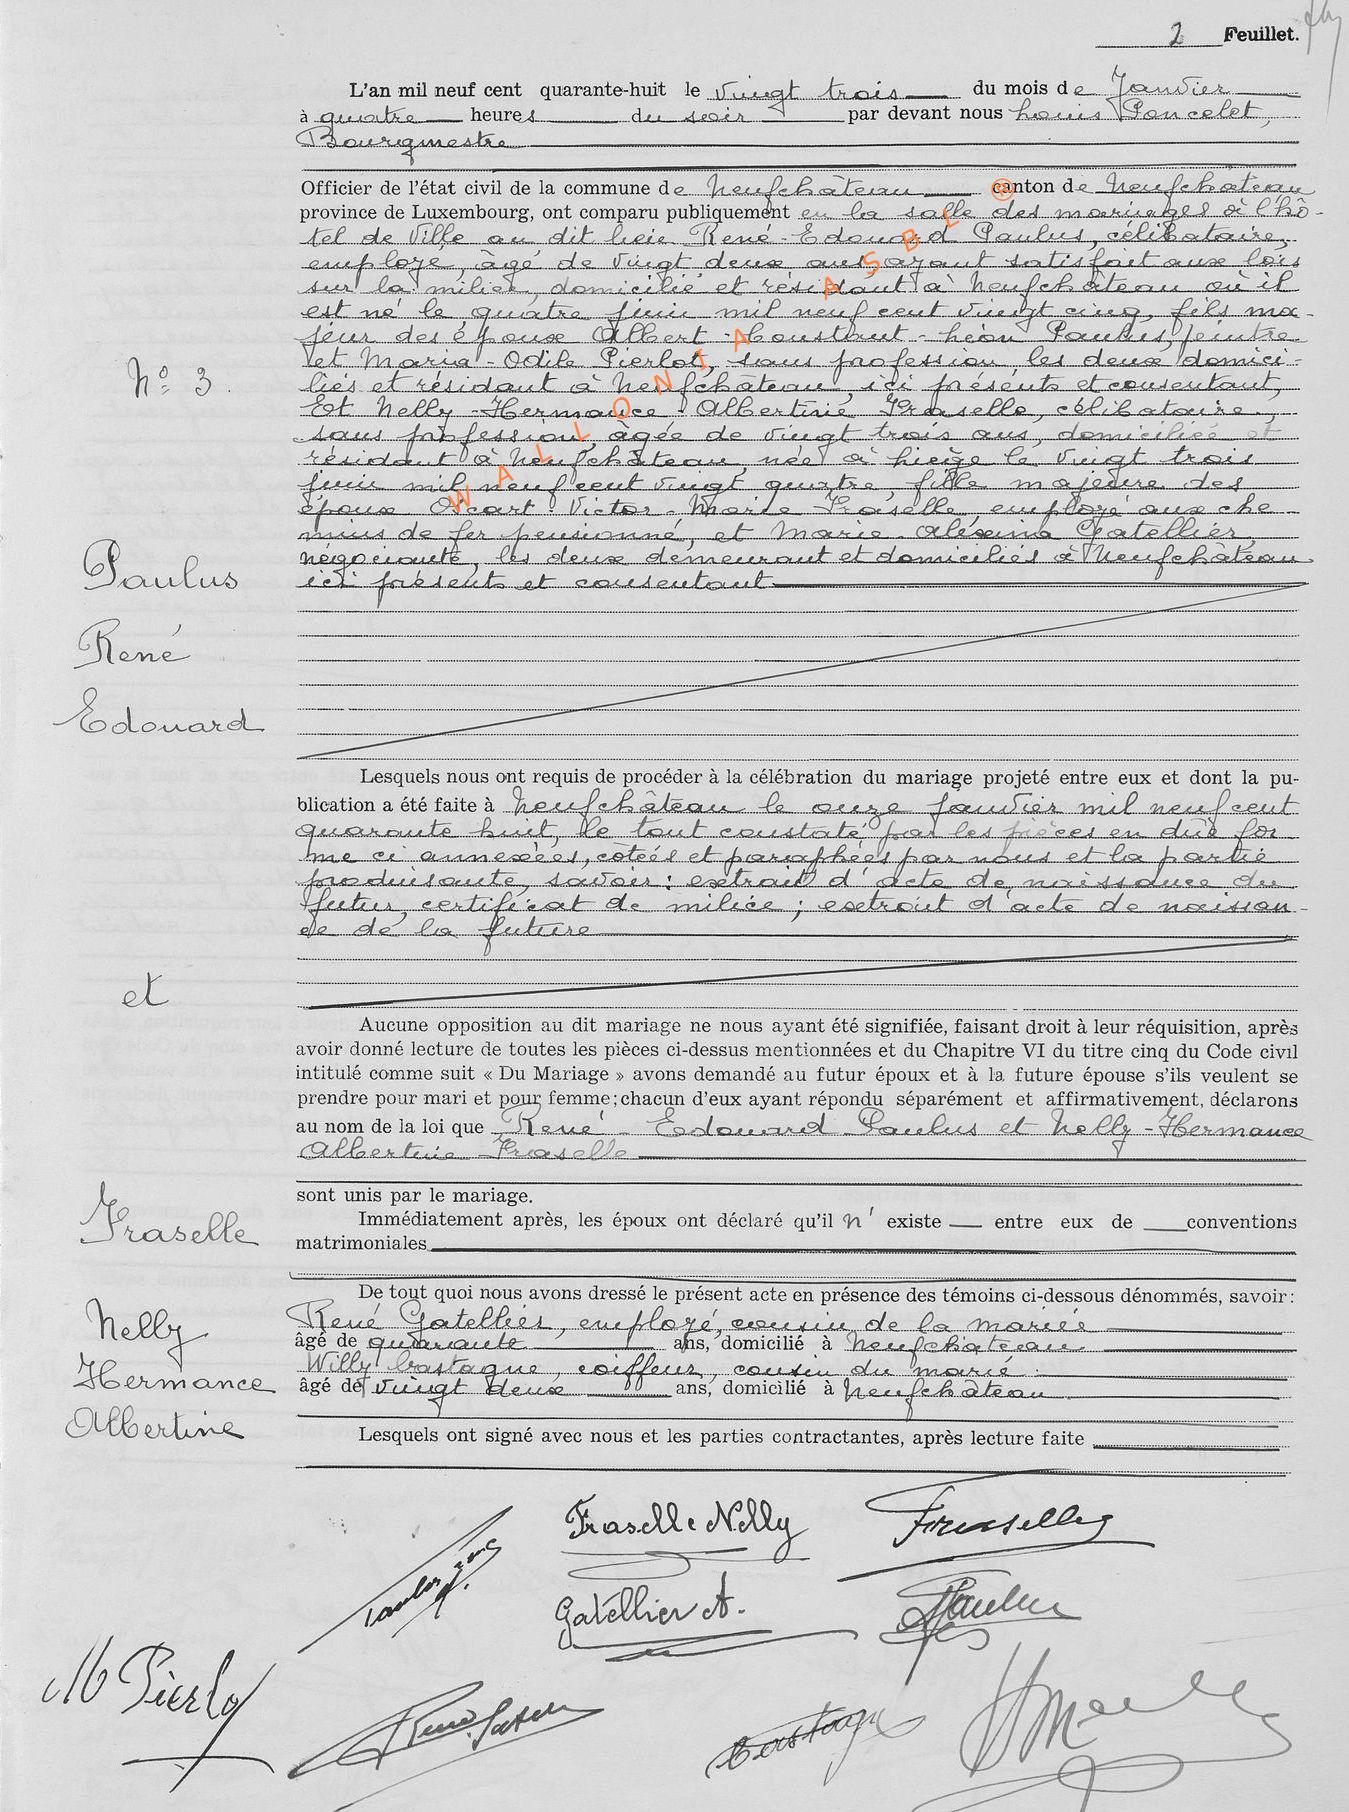 2 Feuillet.
L'an mil neuf cent quarante-huit le vingt trois du mois de Janvier
à quatre heures du soir par devant nous Louis Poncelet,
Bourgmestre
Officier de l'état civil de la commune de Neufchâteau canton de Neufchâteau
province de Luxembourg, ont comparu publiquement en la salle des mariages à l'hô-
tel de Ville au dit lieu René-Edouard Paulus, célibataire,
employé, âgé de vingt deux ans, ayant satisfait aux lois
sur la milice, domicilié et résidant à Neufchâteau où il
est né le quatre juin mil neuf cent vingt cinq, fils ma-
jeur des époux Albert-Constant-Léon Paulus, peintre
et Maria-Odile Pierlot, sans profession, les deux domici-
liés et résidant à Neufchâteau, ici présents et consentant,
Et Nelly-Hermance-Albertine Fraselle, célibataire,
sans profession, âgée de vingt trois ans, domiciliée et
résidant à Neufchâteau, née à Liège le vingt trois
juin mil neuf cent vingt quatre, fille majeure des
époux Oscart-Victor-Marie Fraselle, employé aux che-
mins de fer pensionné, et Marie-Aléxina Gatellier,
négociante, les deux demeurant et domiciliés à Neufchâteau
ici présents et consentant
WALLONIA ASBL ®
N° 3
Paulus
René
Edouard
Lesquels nous ont requis de procéder à la célébration du mariage projeté entre eux et dont la pu-
blication a été faite à Neufchâteau le onze janvier mil neuf cent
quarante huit, le tout constaté par les pièces en dûe for
me ci annexées, côtées et paraphées par nous et la partie
produisante, savoir: extrait d'acte de naissance du
futur, certificat de milice; extrait d'acte de naissan-
ce de la future
et
Aucune opposition au dit mariage ne nous ayant été signifiée, faisant droit à leur réquisition, après
avoir donné lecture de toutes les pièces ci-dessus mentionnées et du Chapitre VI du titre cinq du Code civil
intitulé comme suit « Du Mariage » avons demandé au futur époux et à la future épouse s'ils veulent se
prendre pour mari et pour femme; chacun d'eux ayant répondu séparément et affirmativement, déclarons
au nom de la loi que René-Edouard Paulus et Nelly-Hermance
Albertine Fraselle
sont unis par le mariage.
Immédiatement après, les époux ont déclaré qu'il n'existe entre eux de conventions
matrimoniales
Fraselle
Nelly
Hermance
Albertine
De tout quoi nous avons dressé le présent acte en présence des témoins ci-dessous dénommés, savoir:
René Gatellier, employé, cousin de la mariée
âgé de quarante ans, domicilié à Neufchâteau
Willy Castagne, coiffeur, cousin du marié
âgé de vingt deux ans, domicilié à Neufchâteau
Lesquels ont signé avec nous et les parties contractantes, après lecture faite
Paulus René
Fraselle Nelly
Fraselle
Gatellier A.
Paulus
M Pierlot
René Gatel
Castagne